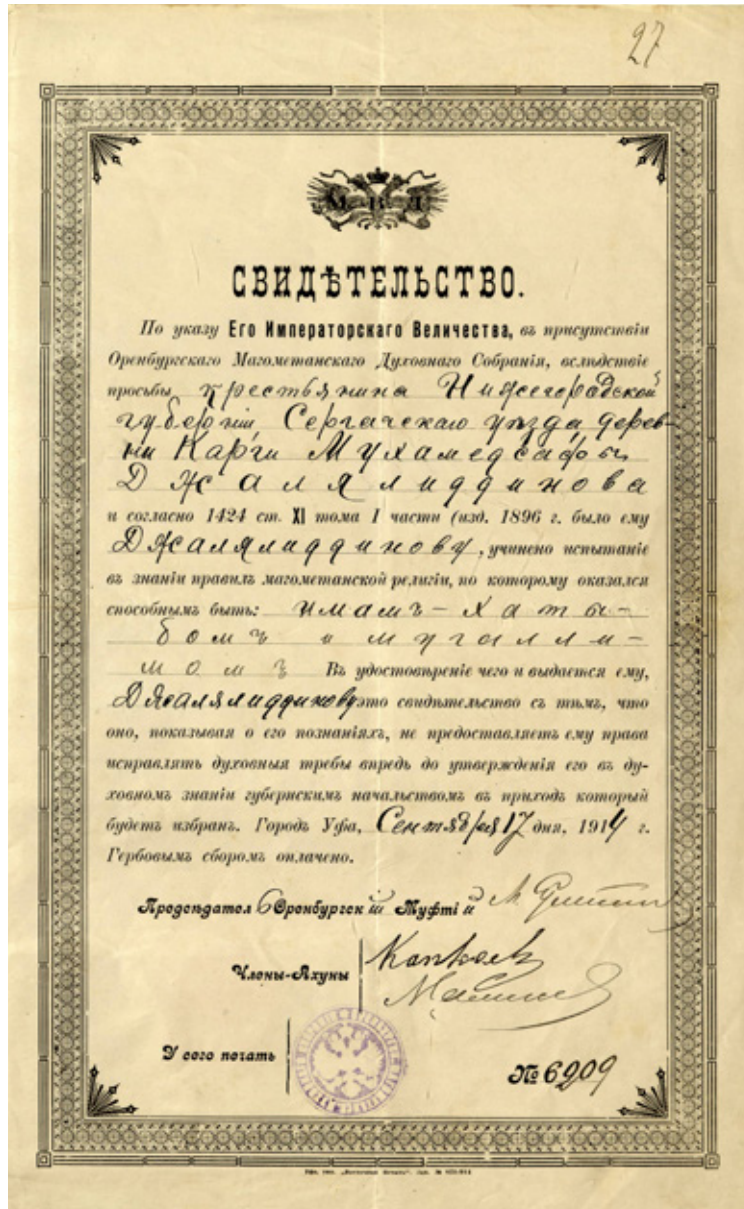 27
М В Д
СВИДѢТЕЛЬСТВО.
По указу Его Императорскаго Величества, въ присутствіи
Оренбургскаго Магометанскаго Духовнаго Собранія, вслѣдствіе
просьбы крестьянина Нижегородской
губерніи, Сергачскаго уѣзда, дерев-
ни Карги Мухамедсафы
Джалялиддинова
и согласно 1424 ст. XI тома I части (изд. 1896 г. было ему
Джалялиддинову, учинено испытаніе
въ знаніи правилъ магометанской религіи, по которому оказался
способнымъ быть: имамъ-хаты-
бомъ и мугалли-
момъ Въ удостовѣреніе чего и выдается ему,
Джалялиддинову это свидѣтельство съ тѣмъ, что
оно, показывая о его познаніяхъ, не предоставляетъ ему права
исправлять духовныя требы впредь до утвержденія его въ ду-
ховномъ знаніи губернскимъ начальствомъ въ приходъ который
будетъ избранъ. Городъ Уфа, Сентября 17 дня, 1914 г.
Гербовымъ сборомъ оплачено.
Оренбургскій Муфтій
Члены-Ахуны Капкаев
У сего печать
№ 6209